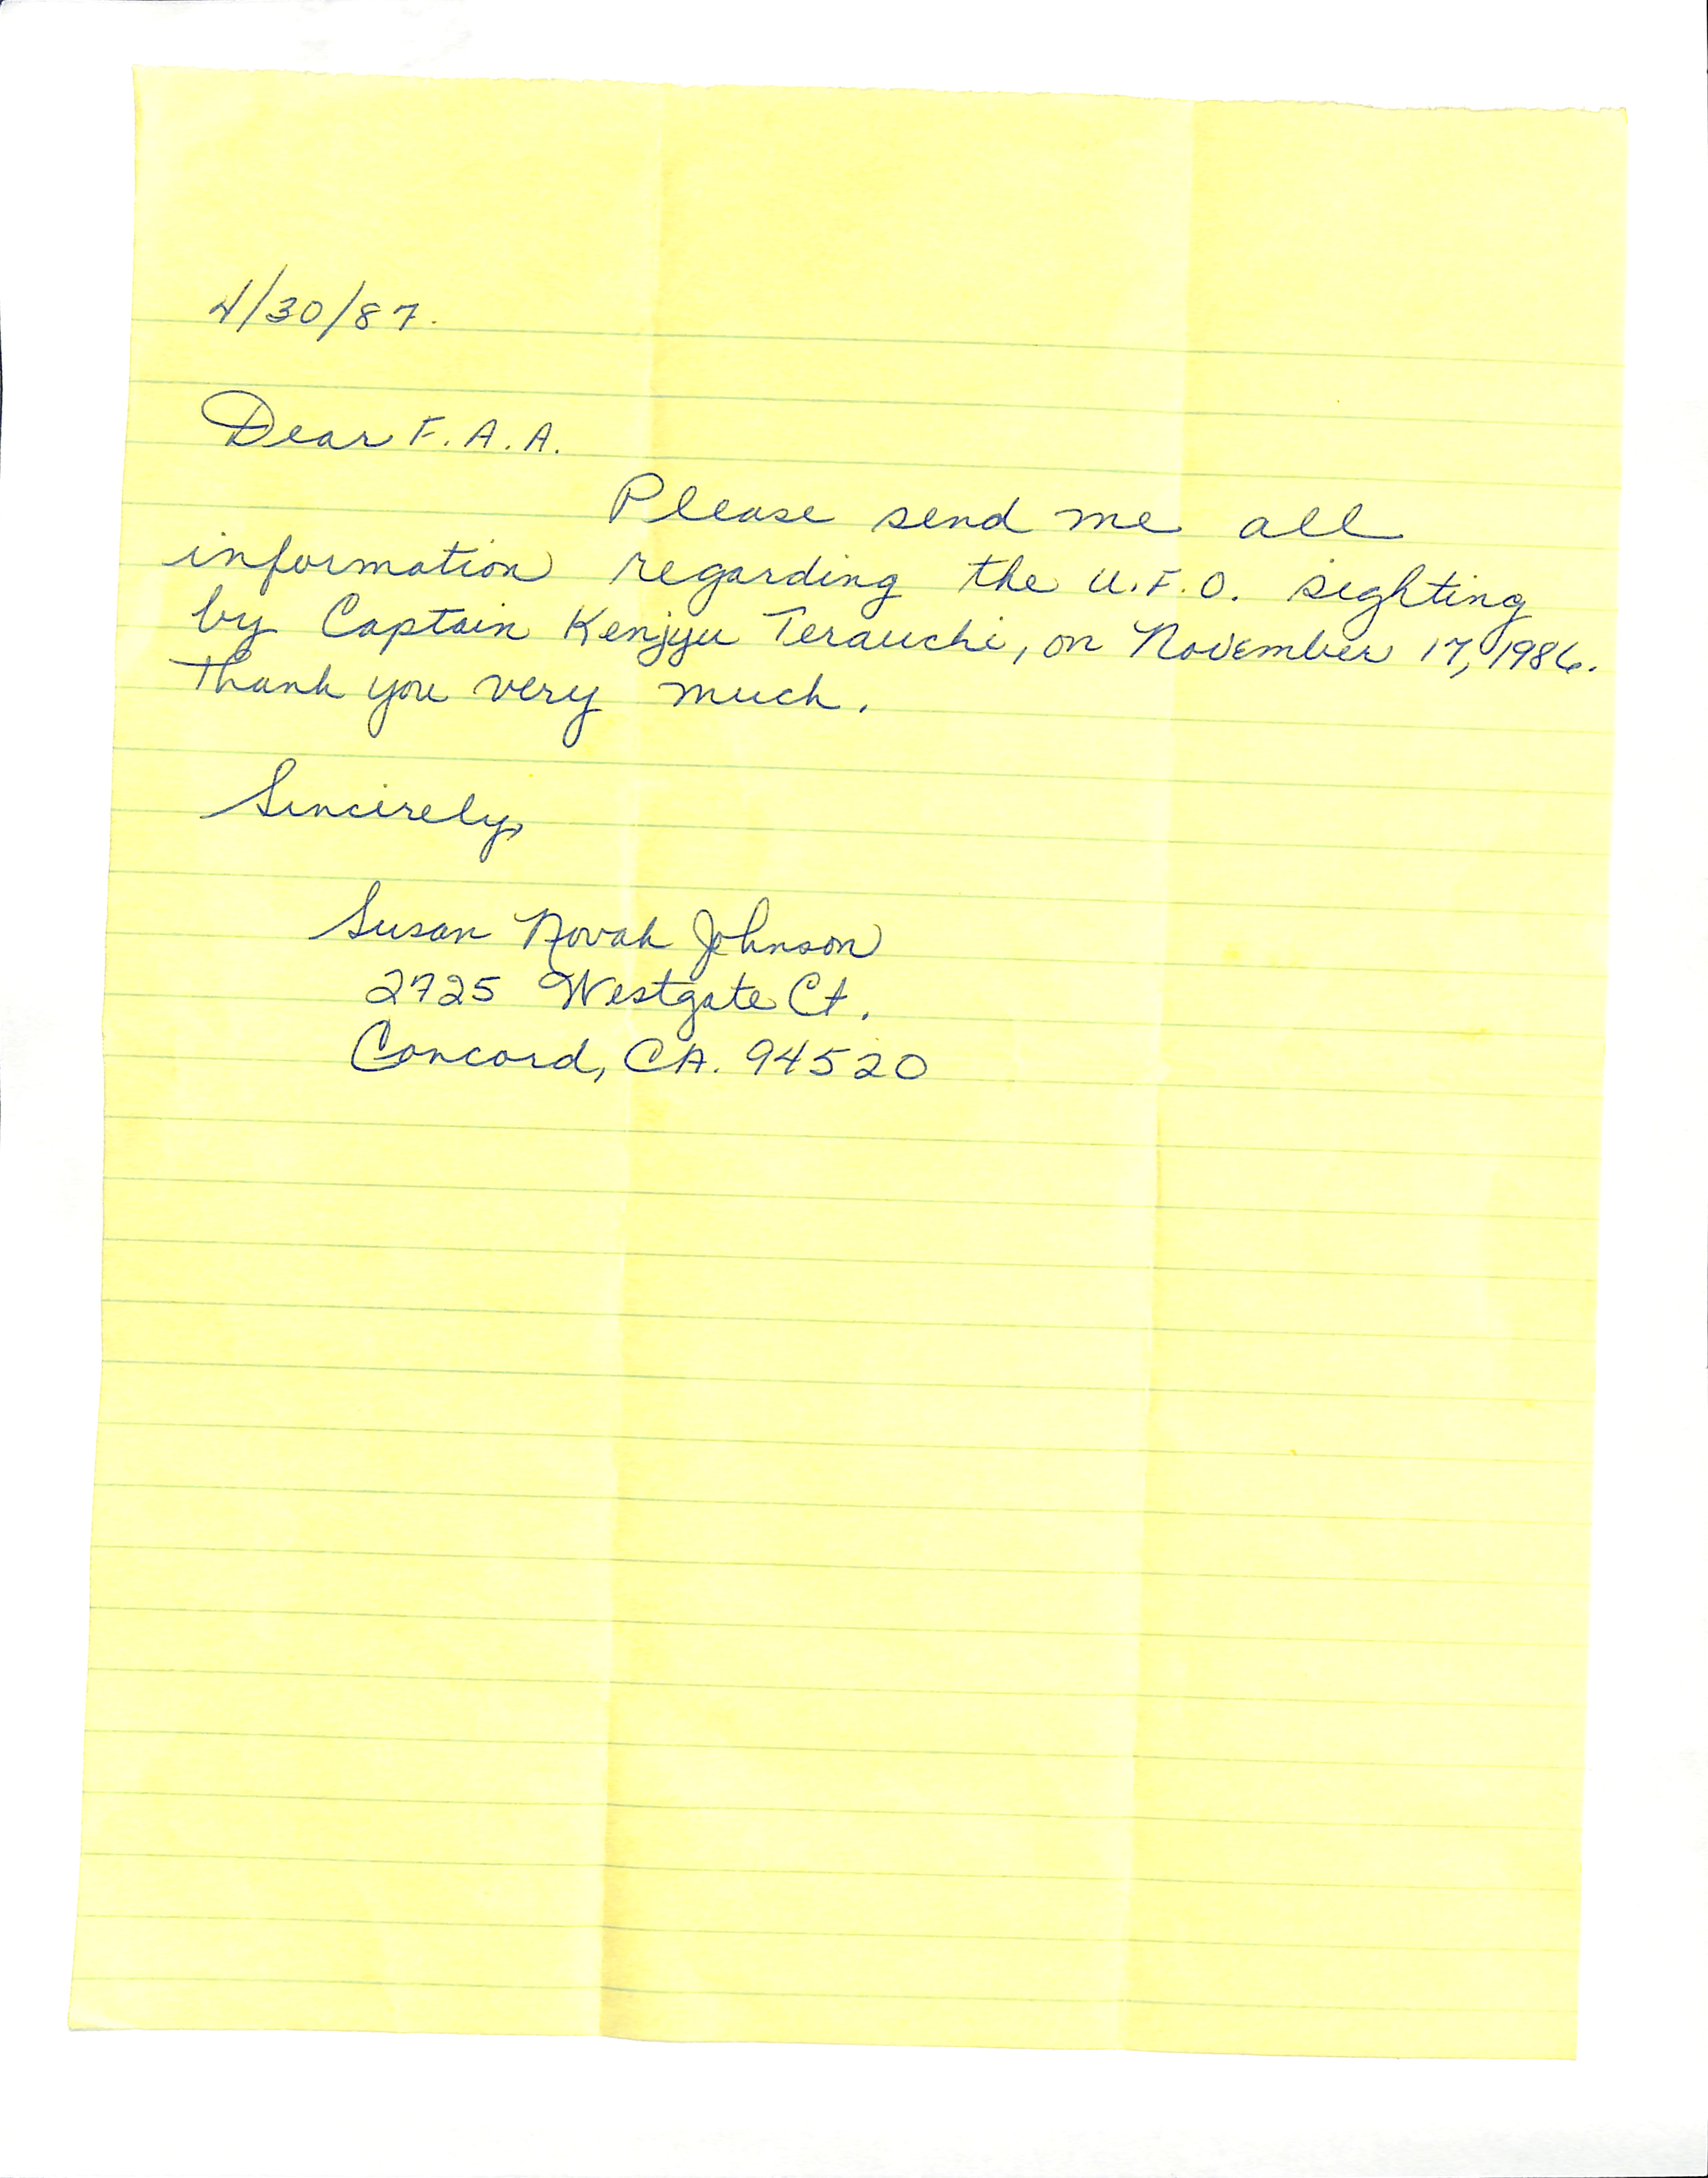 4/30/87.
Dear F.A.A.
Please send me all
information regarding the U.F.O. sighting
by Captain Kenjyu Terauchi, on November 17, 1986.
Thank you very much.
Sincerely,
Susan Novak Johnson
2725 Westgate Ct.
Concord, CA. 94520